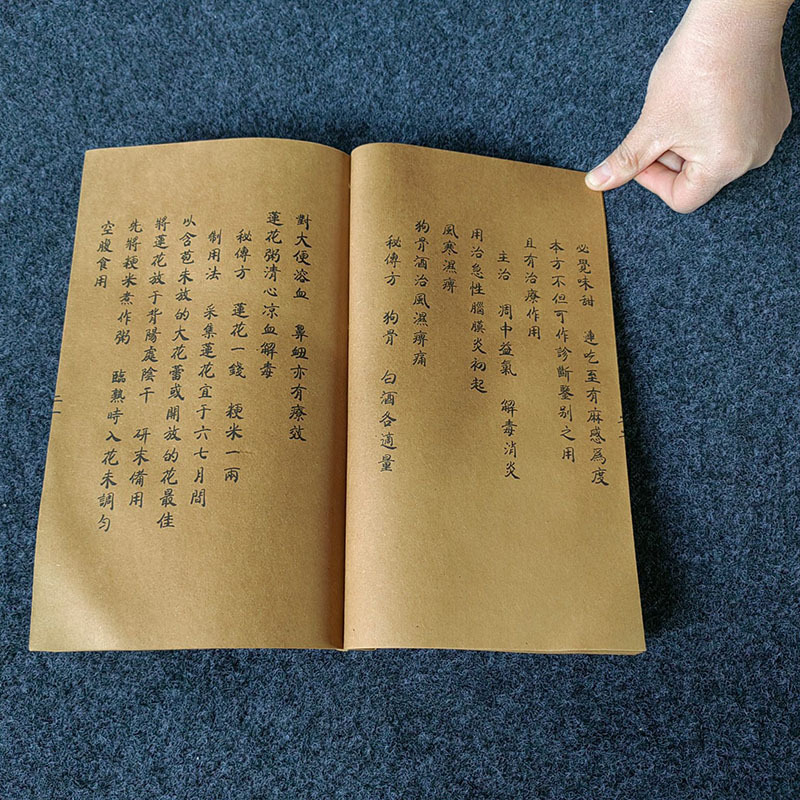 必覺味甜　連吃至有麻感爲度
本方不但可作診斷鑒别之用
且有治療作用
主治　调中益氣　解毒消炎
用治急性腦膜炎初起
風寒濕痹
狗骨酒治風濕痹痛
秘傳方　狗骨　白酒各適量
對大便溶血　鼻衄亦有療效
蓮花粥清心凉血解毒
秘傳方　蓮花一錢　粳米一兩
制用法　采集蓮花宜于六七月間
以含苞未放的大花蕾或開放的花最佳
將蓮花放于背陽處陰干　研末備用
先將粳米煮作粥　臨熟時入花末調匀
空腹食用